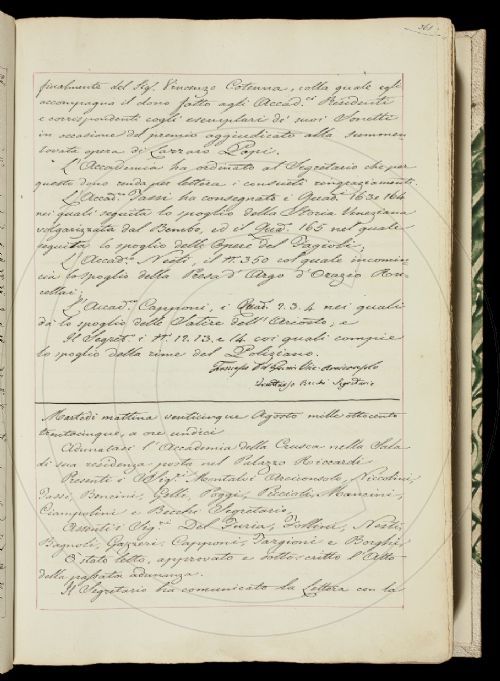 361
finalmente del Sig.r Vincenzo Cotenna, colla quale egli
accompagna il dono fatto agli Accad.ci Residenti
e corrispondenti cogli esemplari de' suoi Sonetti
in occasione del premio aggiudicato alla summen-
tovata opera di Lazzaro Papi.
L'Accademia ha ordinato al Segretario che per
questo dono renda per lettera i consueti ringraziamenti.
L'Accad.co Tassi ha consegnato i Quad. 163 e 164
nei quali seguita lo spoglio della Storia Veneziana
volgarizzata dal Bembo, ed il Qua. 165 nel quale
seguita lo spoglio delle Opere del Fagioli;
L'Accad.co Nesti, il N.o 350 col quale incomin-
cia lo spoglio della Presa d'Argo d'Orazio Ru-
cellai;
L'Accad.co Capponi, i Quad. 2. 3. 4 nei quali
dà lo spoglio delle Satire dell'Ariosto; e
Il Segret.o i N.i 12. 13. e 14. coi quali compie
lo spoglio delle rime del Poliziano.
Vice-Arciconsolo
Becchi Segretario
Martedì mattina venticinque Agosto mille ottocento
trentacinque, a ore undici
Adunatasi l'Accademia della Crusca nella Sala
di sua residenza posta nel Palazzo Riccardi
Presenti i Sig.ri Montalvi Arciconsolo, Niccolini,
Tassi, Bencini, Gelli, Poggi, Piccioli, Mancini,
Ciampolini e Becchi Segretario,
Assenti i Sig.ri Del Furia, Follini, Nesti,
Bagnoli, Gazzeri, Capponi, Targioni e Borghi,
È stato letto, approvato e sottoscritto l'Atto
della passata adunanza.
Il Segretario ha comunicato la Lettera con la